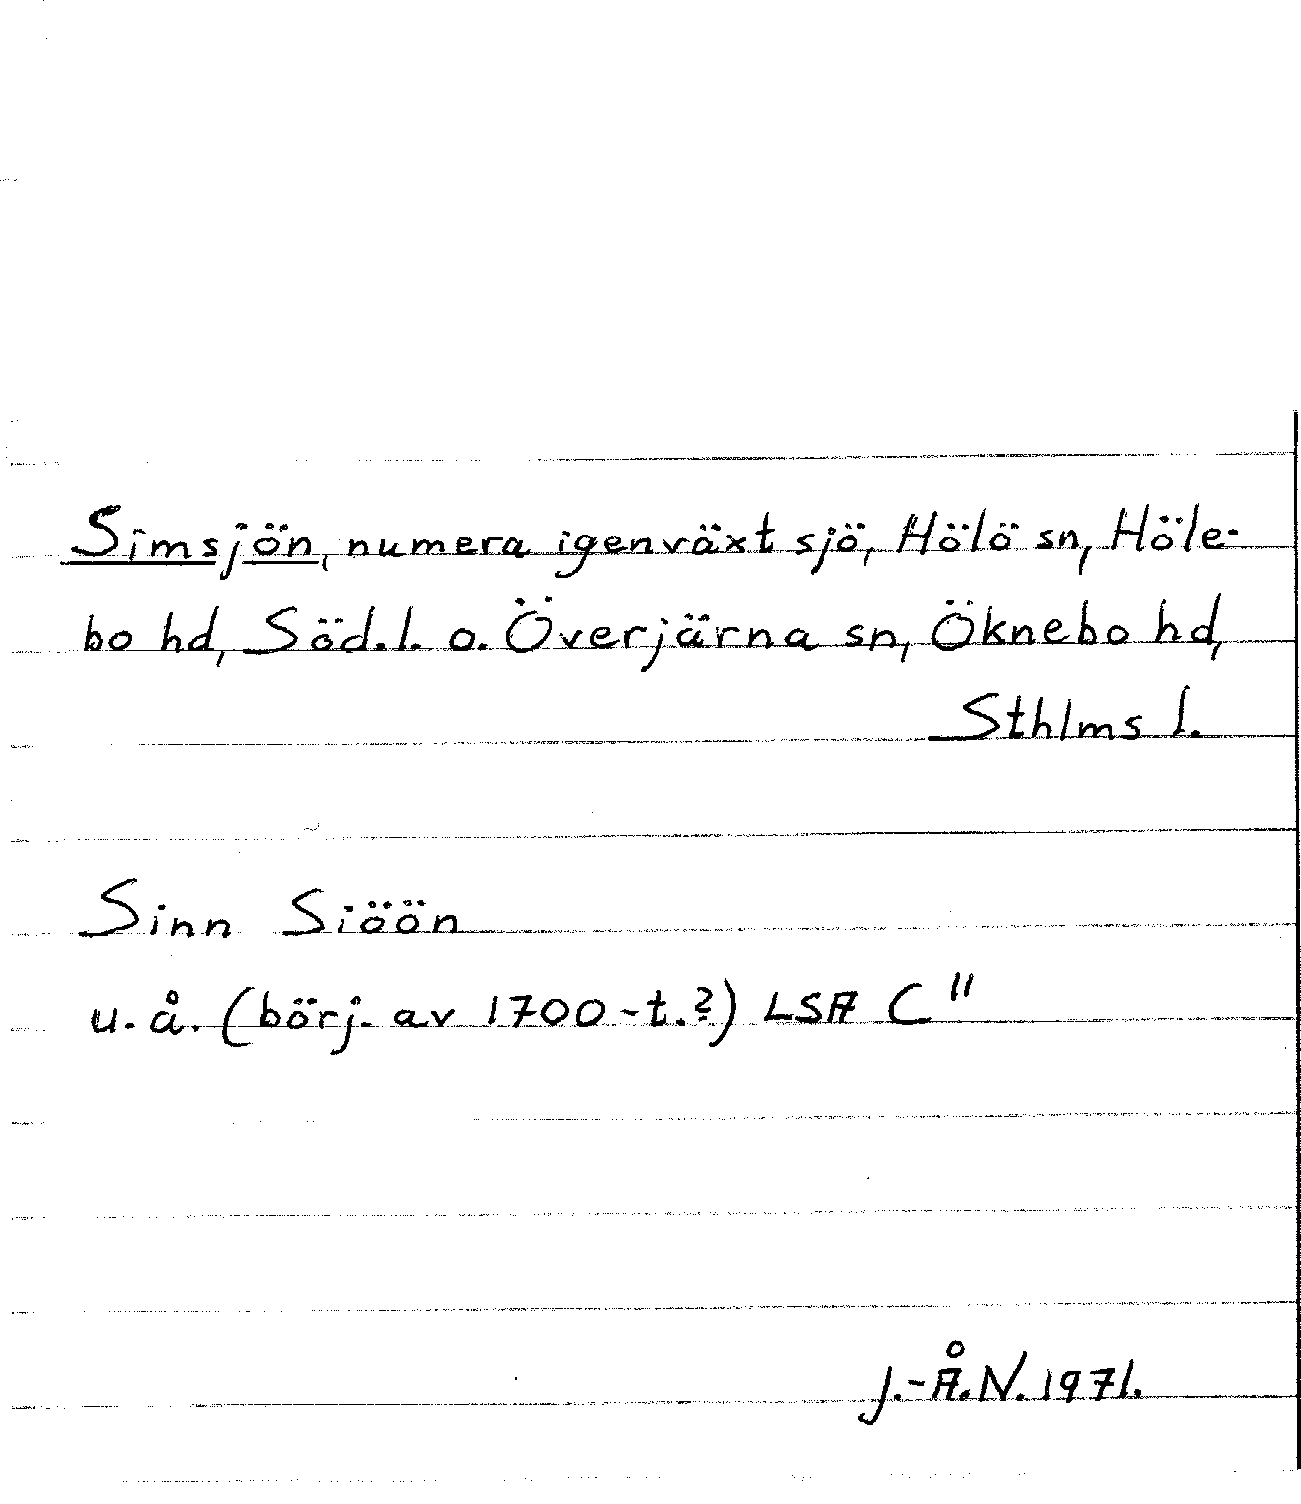 Simsjön, numera igenväxt sjö, Hölö sn, Höle-
bo hd, Söd. l. o. Överjärna sn, Öknebo hd,
Sthlms l.
Sinn Siöön
u. å. (börj. av 1700-t.?) LSA C"
J.-Å.N. 1971.